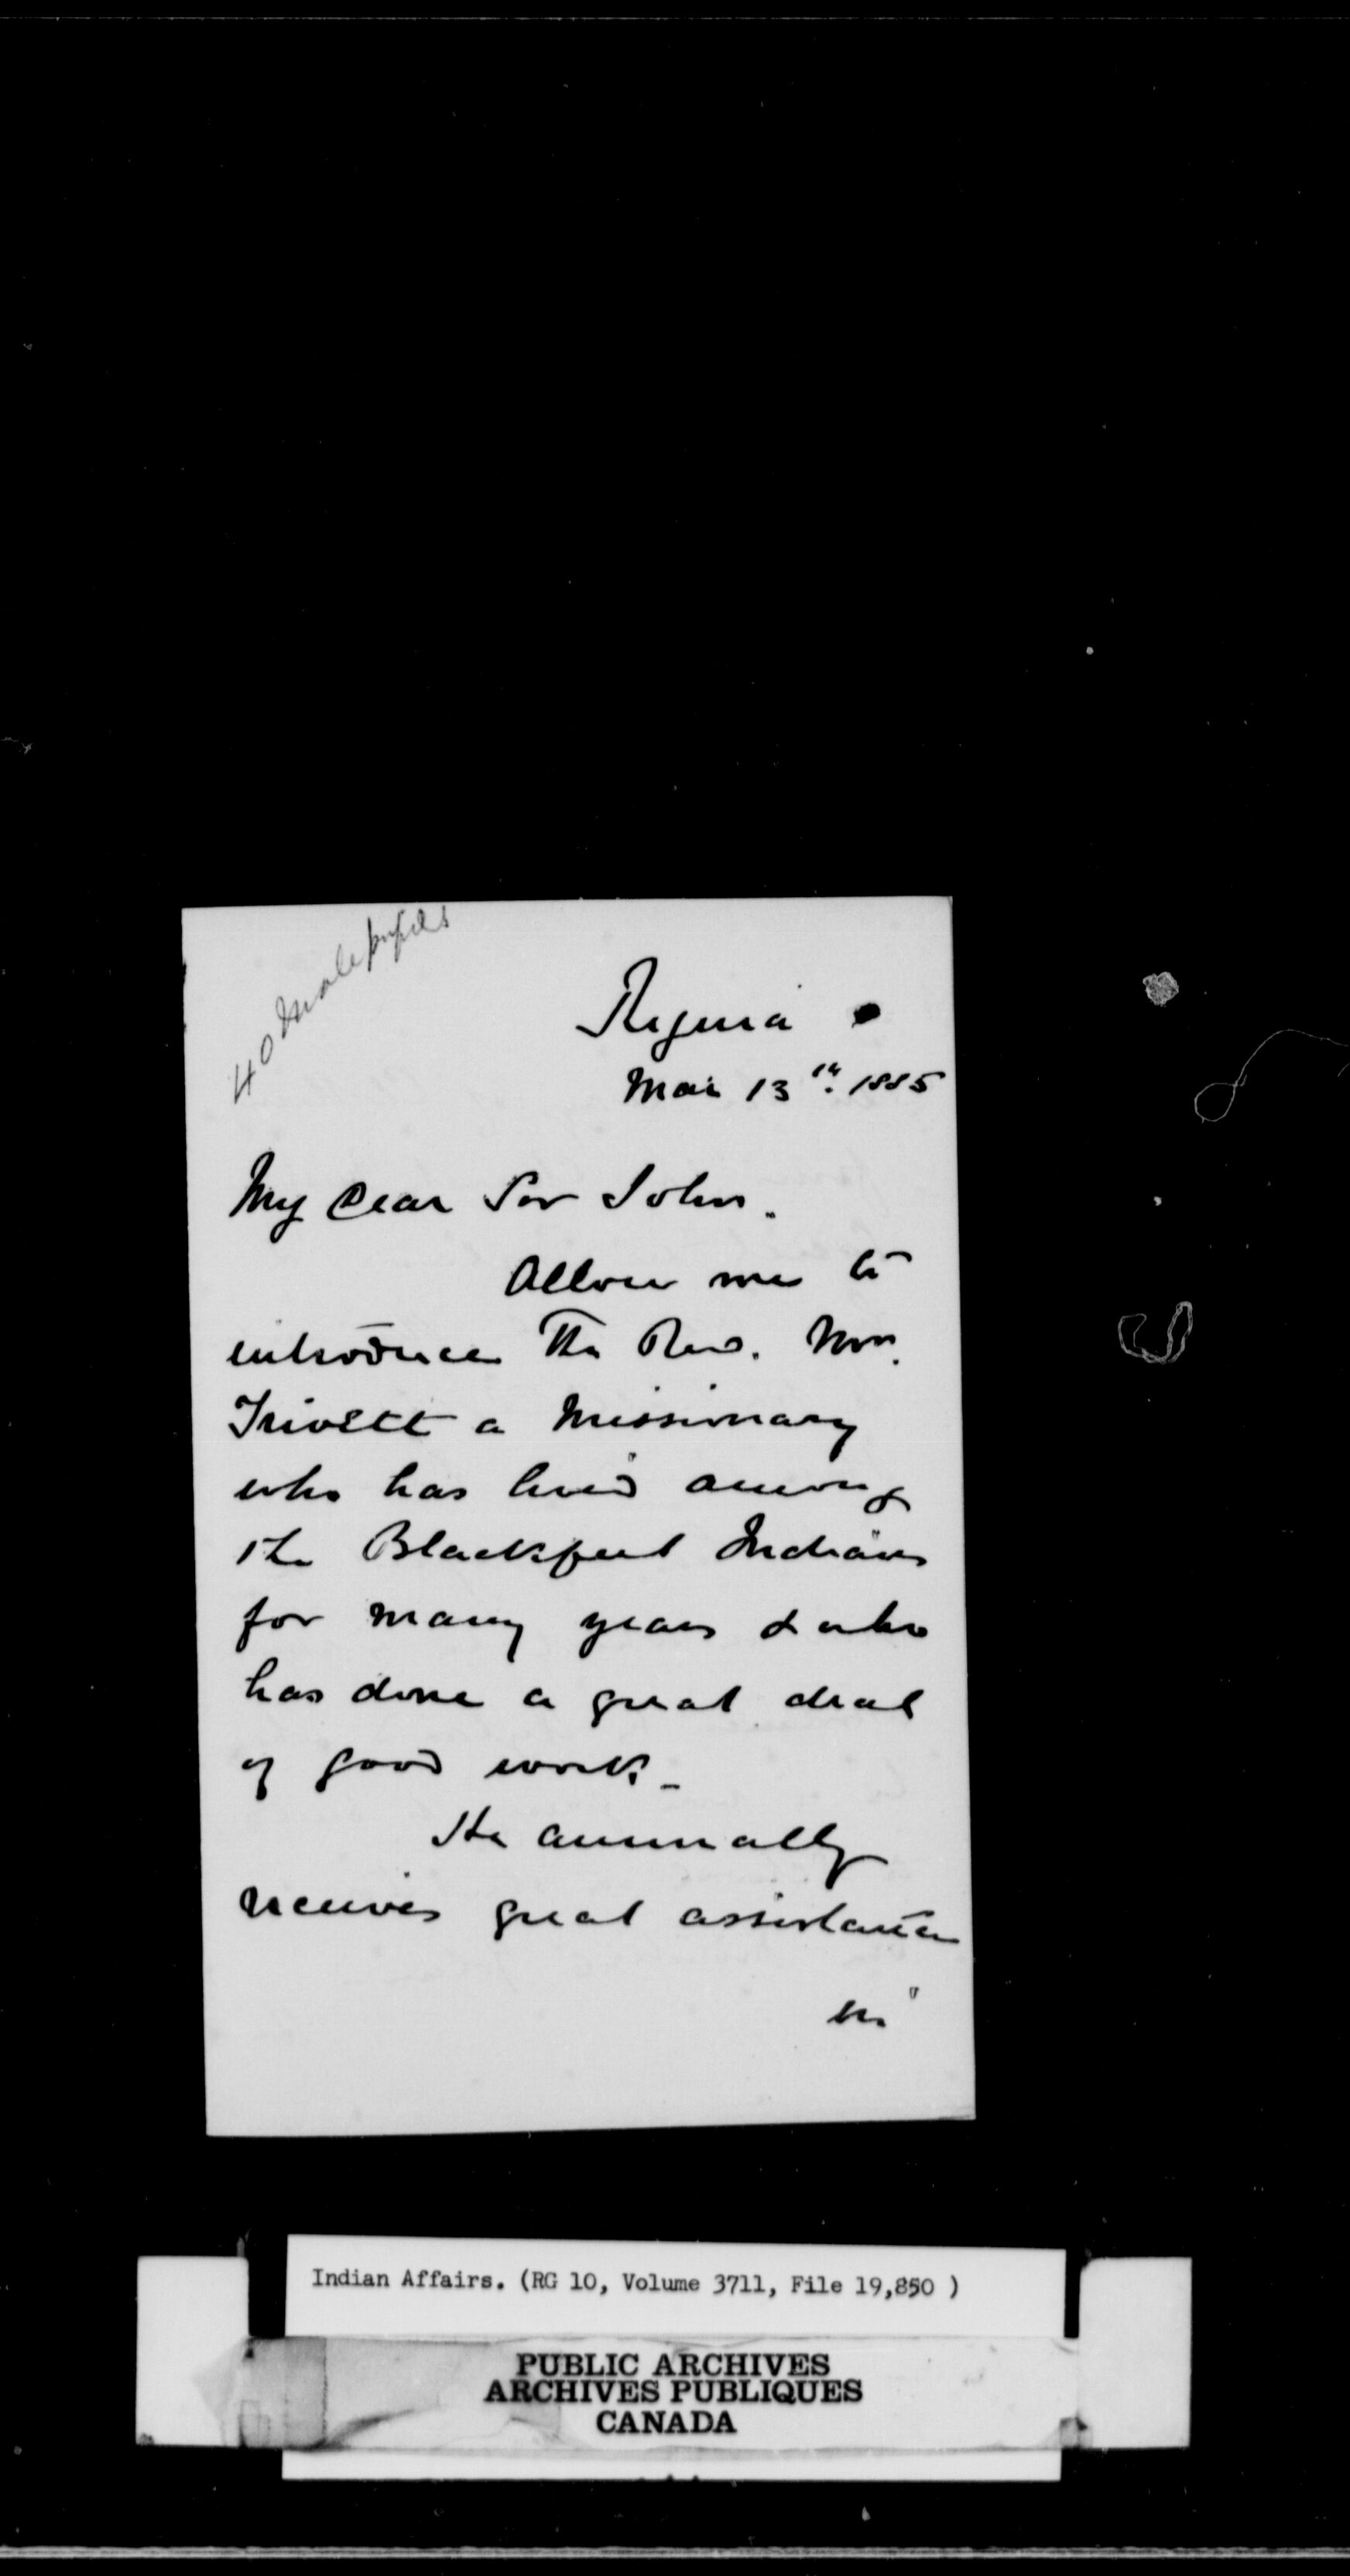 40 Male pupils
Regina
Mar 13th. 1885
My Dear Sir John.
Allow me to
introduce The Rev. Mr.
Trivett a Missionary
who has lived among
the Blackfeet Indians
for many years & who
has done a great deal
of good work_
He annually
receives great assistance
in
Indian Affairs. (RG 10, Volume 3711, File 19,850 )
PUBLIC ARCHIVES
ARCHIVES PUBLIQUES
CANADA